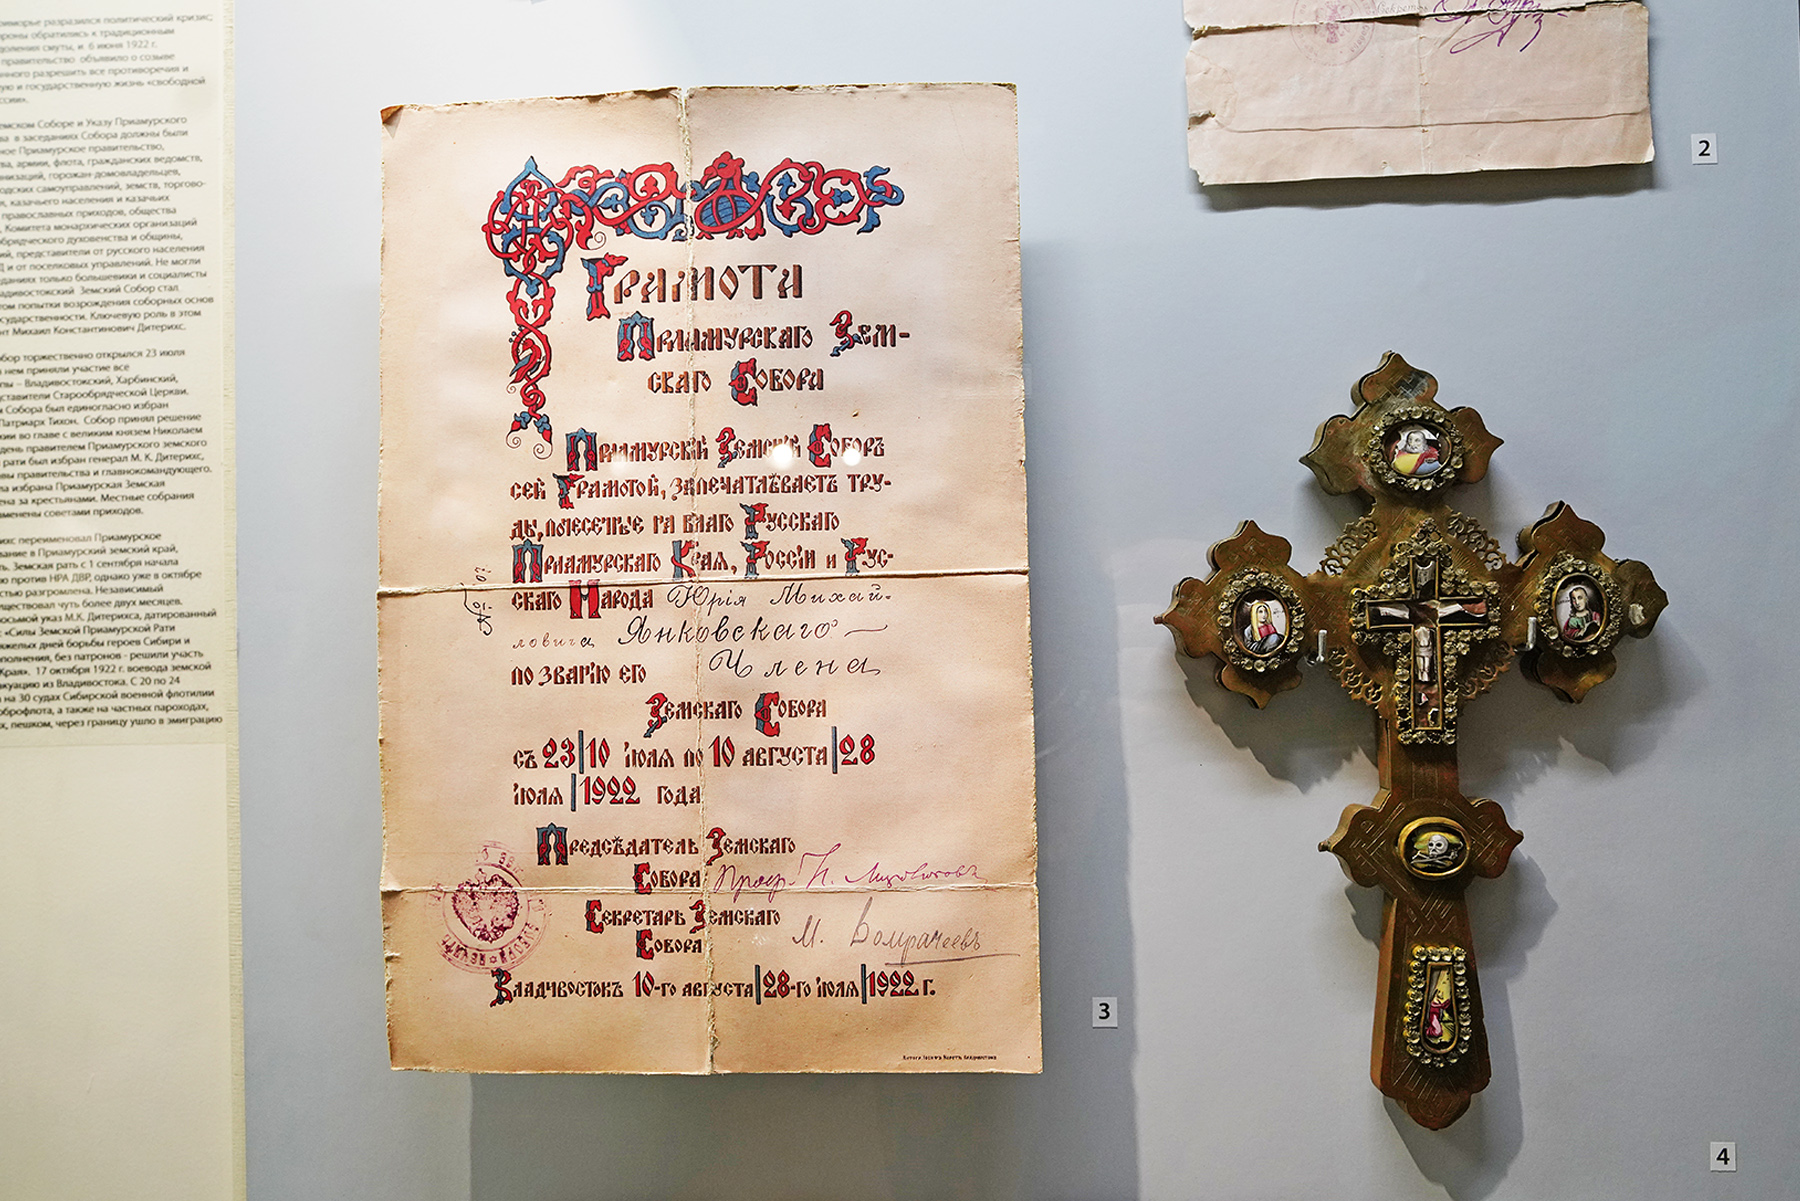 риморье разразился политический кризис;
ороны обратились к традиционным
доления смуты, и 6 июня 1922 г.
правительство объявило о созыве
нного разрешить все противоречия и
ую и государственную жизнь «свободной
ссии».
емском Соборе и Указу Приамурского
ва в заседаниях Собора должны были
ное Приамурское правительство,
ва, армии, флота, гражданских ведомств,
низаций, горожан-домовладельцев,
одских самоуправлений, земств, торгово-
я, казачьего населения и казачьих
православных приходов, общества
, Комитета монархических организаций
обрядческого духовенства и общины,
ий, представители от русского населения
Д и от поселковых управлений. Не могли
еданиях только большевики и социалисты
адивостокский Земский Собор стал
том попытки возрождения соборных основ
осударственности. Ключевую роль в этом
нт Михаил Константинович Дитерихс.
обор торжественно открылся 23 июля
в нем приняли участие все
пы – Владивостокский, Харбинский,
дставители Старообрядческой Церкви.
м Собора был единогласно избран
Патриарх Тихон. Собор принял решение
хии во главе с великим князем Николаем
день правителем Приамурского земского
рати был избран генерал М. К. Дитерихс,
вы правительства и главнокомандующего.
ла избрана Приамурская Земская
ена за крестьянами. Местные собрания
аменены советами приходов.
ихс переименовал Приамурское
вание в Приамурский земский край,
ть. Земская рать с 1 сентября начала
ю против НРА ДВР, однако уже в октябре
стью разгромлена. Независимый
уществовал чуть более двух месяцев.
осьмой указ М.К. Дитерихса, датированный
: «Силы Земской Приамурской Рати
яжелых дней борьбы героев Сибири и
полнения, без патронов - решили участь
Края». 17 октября 1922 г. воевода земской
акуацию из Владивостока. С 20 по 24
а на 30 судах Сибирской военной флотилии
оброфлота, а также на частных пароходах,
х, пешком, через границу ушло в эмиграцию
2
Грамота
Приамурскаго Зем-
скаго Собора
Приамурскій Земскій Соборъ
сей Грамотой, запечатлѣваетъ тру-
ды, понесенные на благо Русскаго
Приамурскаго Края, Россіи и Рус-
скаго Народа Юрія Михай-
ловича Янковскаго
по званію его Члена
Земскаго Собора
съ 23|10 іюля по 10 августа|28
іюля|1922 года
Предсѣдатель Земскаго
Собора Проф. Н.
Секретарь Земскаго
Собора М.
Владивостокъ 10-го августа|28-го іюля|1922 г.
3
4